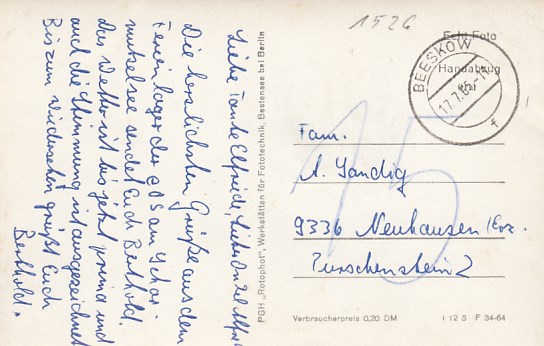 Liebe Tante Elfriede, Lieber Onkel Alfred
Die herzlichsten Grüße aus dem
Ferienlager der am Schar-
mützelsee sendet Euch Berthold.
Das Wetter ist bis jetzt prima und
auch die Stimmung ist ausgezeichnet
Bis zum Wiedersehen grüßt Euch
Berthold.
PGH „Rotophot", Werkstätten für Fototechnik, Bestensee bei Berlin
1526
Echt Foto
Handabzug
BEESKOW
17.7.65
f
15
Fam.
A. Sandig
9336 Neuhausen/Erz.
Purschenstein 2
Verbraucherpreis 0,20 DM
I 12 5 F 34-64